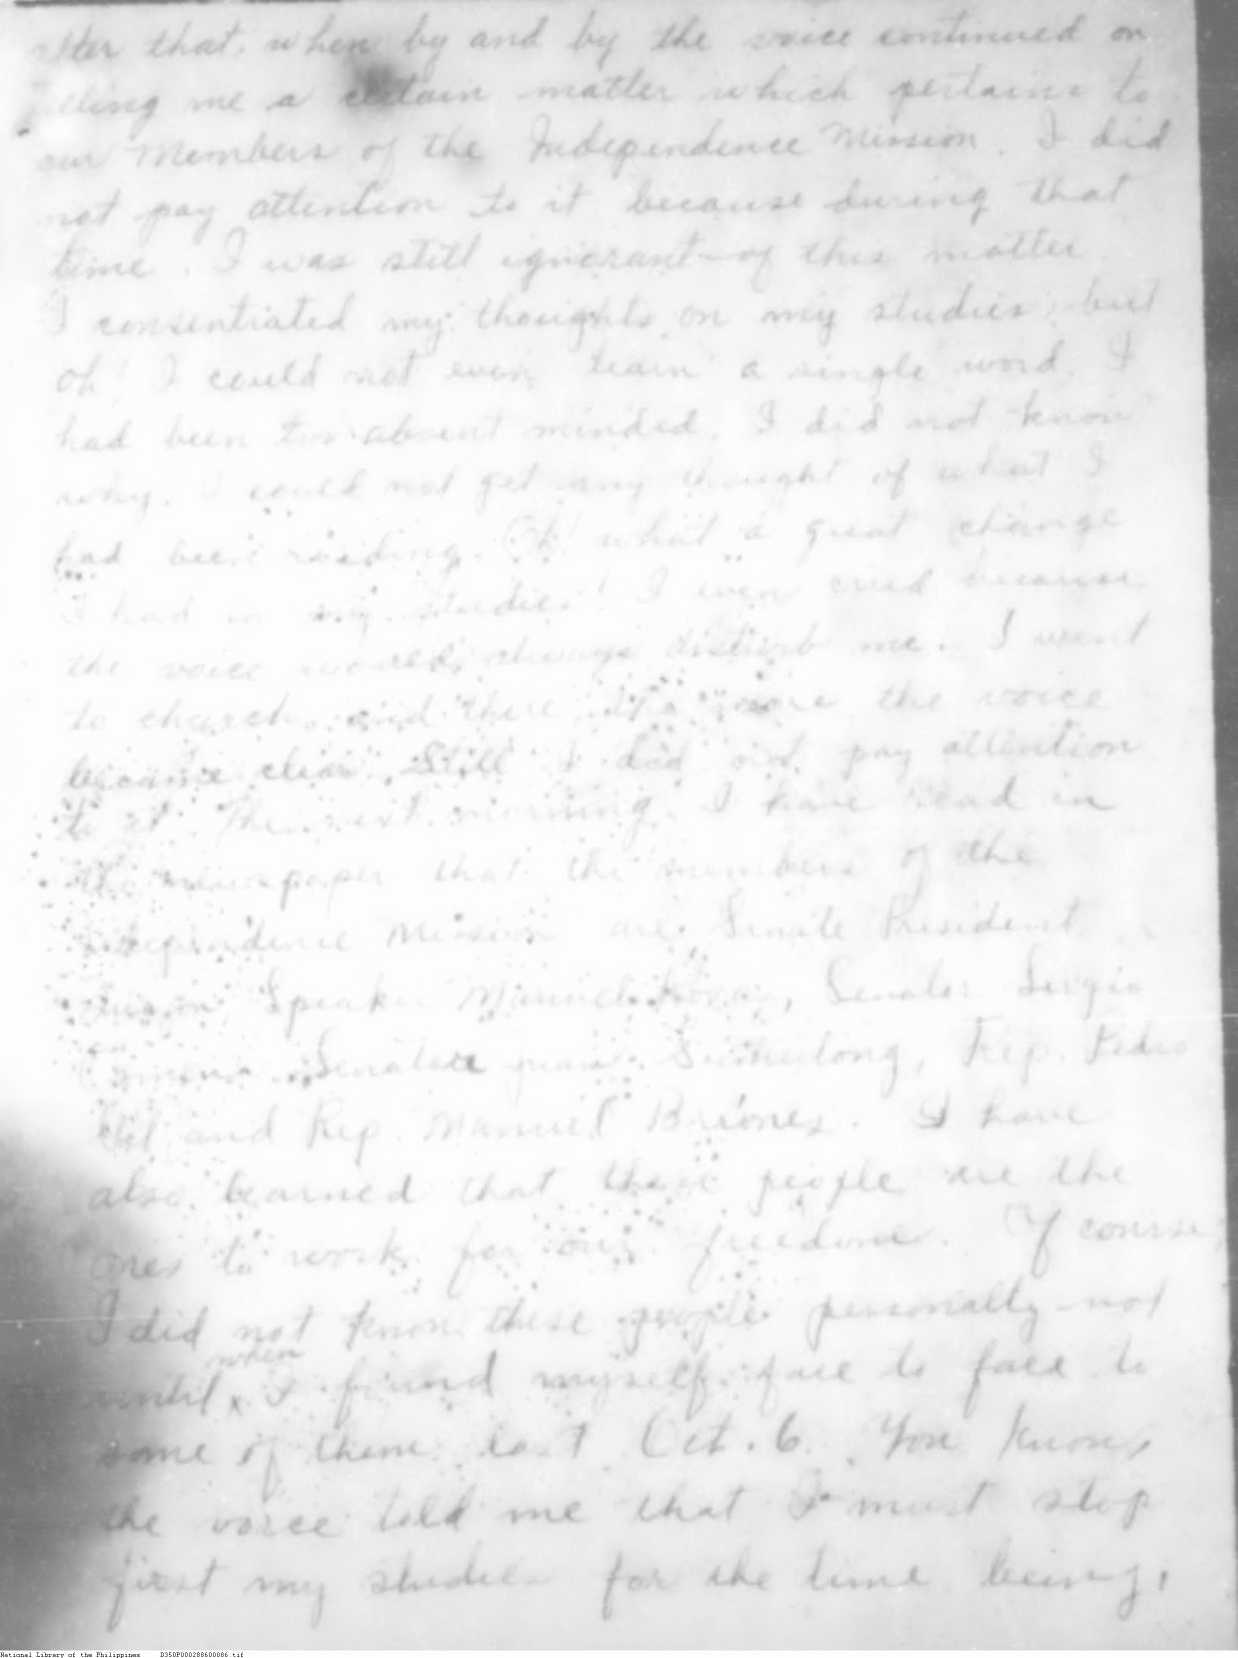 after that, when by and by the voice continued on
telling me a certain matter which pertains to
our Members of the Independence Mission. I did
not pay attention to it because during that
time, I was still ignorant of this matter.
I consentrated my thoughts on my studies, but
oh! I could not even learn a single word. I
had been too absent minded. I did not know
why. I could not get any thought of what I
had been reading. Oh! what a great change
I had in my studies! I even cried because
the voice would always disturb me. I went
to church, and there the more the voice
became clear. Still I did not pay attention
to it. The next morning, I have read in
the newspaper that the members of the
Independence Mission are: Senate President
Quezon, Speaker Manuel Roxas, Senator Sergio
Osmena, Senator Juan Sumulong, Rep. Pedro
Gil and Rep. Manuel Briones. I have
also learned that these people are the
ones to work for our freedome. Of course,
I did not know these people personally not
until when I found myself face to face to
some of them last Oct. 6. You know,
the voice told me that I must stop
first my studies for the time being,
National Library of the Philippines D350P000288600086.tif